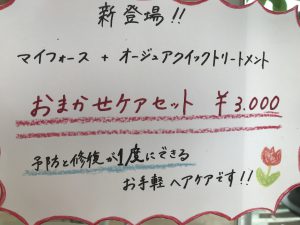 新登場!!
マイフォース + オージュアクイックトリートメント
おまかせケアセット ¥3.000
予防と修復が1度にできる
お手軽ヘアケアです!!